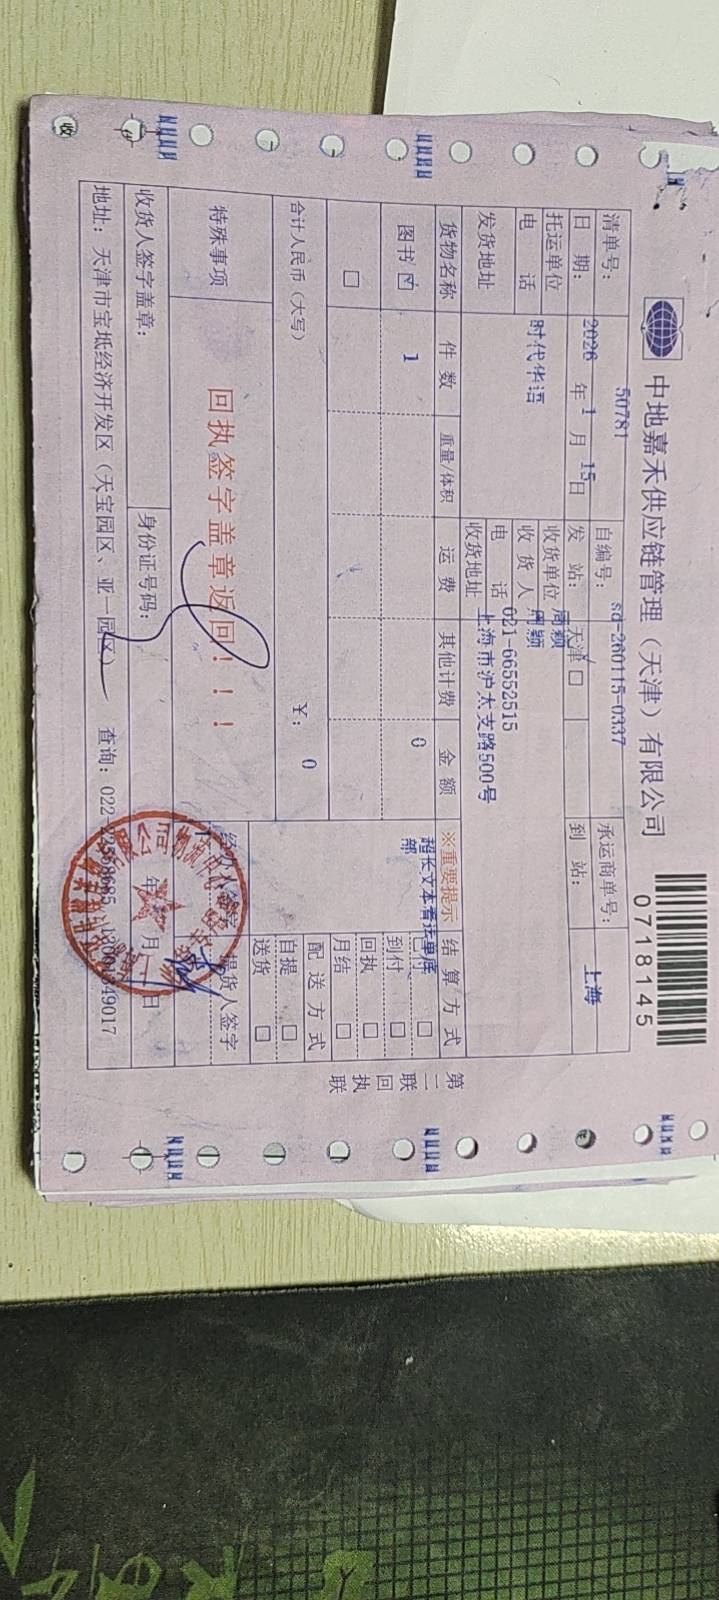 中地嘉禾供应链管理（天津）有限公司
0718145
清单号： 50781 自编号： sd-260115-0337 承运商单号：
日 期： 2026 年 1 月 15 日 发 站： 天津 □ 到 站： 上海
托运单位 时代华语 收货单位 周颖
电 话 收 货 人 周颖
电 话 021-66552515
发货地址 收货地址 上海市沪太支路500号
货物名称 件 数 重量/体积 运 费 其他计费 金 额 ※重要提示 结 算 方 式
图书 ☑ 1 0 超长文本看运单底部 □
到付 □
回执 □
□ 月结 □
合计人民币（大写） ￥： 0 配 送 方 式
自提 □
送货 □
特殊事项 回执签字盖章返回！！！ 提货人签字
收货人签字盖章： 身份证号码： 年 月 日
地址：天津市宝坻经济开发区（天宝园区、亚一园区） 查询：022-
第二联 回执联
收